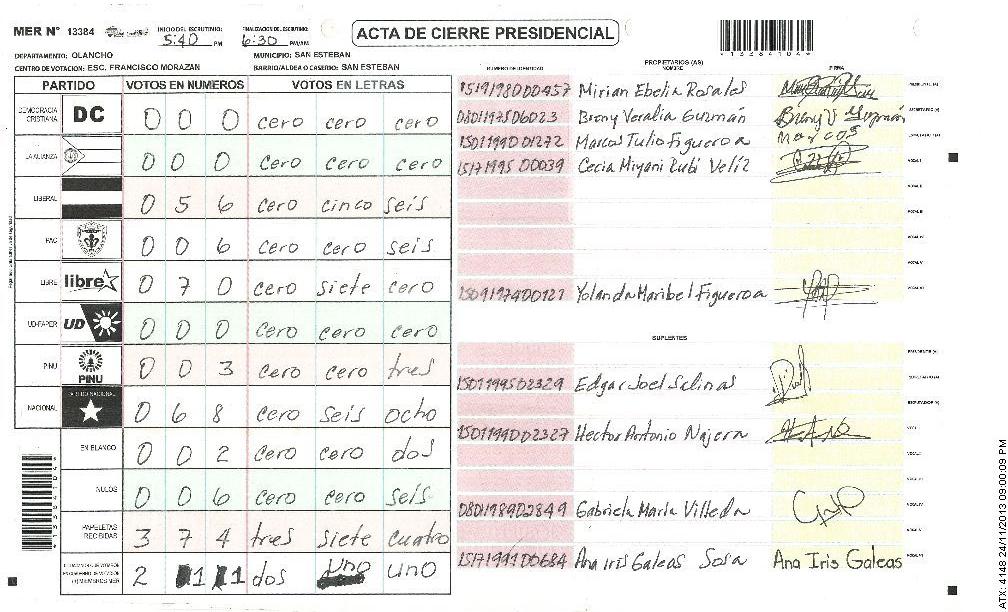 MER N° 13384 INICIO DEL ESCRUTINIO: 5:40 PM FINALIZACION DEL ESCRUTINIO: 6:30 PM/AM ACTA DE CIERRE PRESIDENCIAL
DEPARTAMENTO: OLANCHO MUNICIPIO: SAN ESTEBAN
CENTRO DE VOTACION: ESC. FRANCISCO MORAZAN BARRIO/ALDEA O CASERIO: SAN ESTEBAN
PARTIDO VOTOS EN NUMEROS VOTOS EN LETRAS
DEMOCRACIA CRISTIANA DC 0 0 0 cero cero cero
LA ALIANZA 0 0 0 cero cero cero
LIBERAL 0 5 6 cero cinco seis
PAC 0 0 6 cero cero seis
LIBRE libre 0 7 0 cero siete cero
UD-FAPER UD 0 0 0 cero cero cero
PINU PINU 0 0 3 cero cero tres
NACIONAL 0 6 8 cero seis ocho
EN BLANCO 0 0 2 cero cero dos
NULOS 0 0 6 cero cero seis
PAPELETAS RECIBIDAS 3 7 4 tres siete cuatro
2 1 1 dos uno uno
NUMERO DE IDENTIDAD PROPIETARIOS (AS) NOMBRE FIRMA
1519198000457 Mirian Ebelia Rosales
0801197506023 Breny Veralia Guzmán Breny V Guzmán
1501199001272 Marcos Tulio Figueroa Marcos
1517199500039 Cecia Miyani Rubi Veliz
1509197400127 Yolanda Maribel Figueroa
SUPLENTES
1501199502329 Edgar Joel Salinas
1501199002327 Hector Antonio Najera
0801198902849 Gabriela Maria Villeda
1517199100684 Ana iris Galeas Sosa Ana Iris Galeas
ATX: 4148 24/11/2013 09:00:09 PM